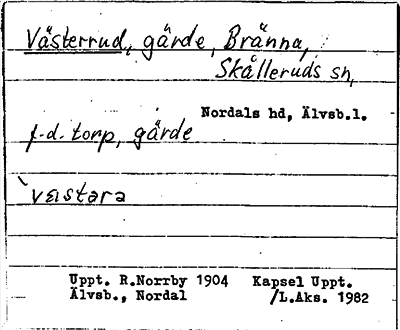 Västerrud, gärde, Bränna,
Skålleruds sn,
Nordals hd, Älvsb.l.
f.d. torp, gärde
Uppt. R.Norrby 1904 Kapsel Uppt.
Älvsb., Nordal /L.Aks. 1982